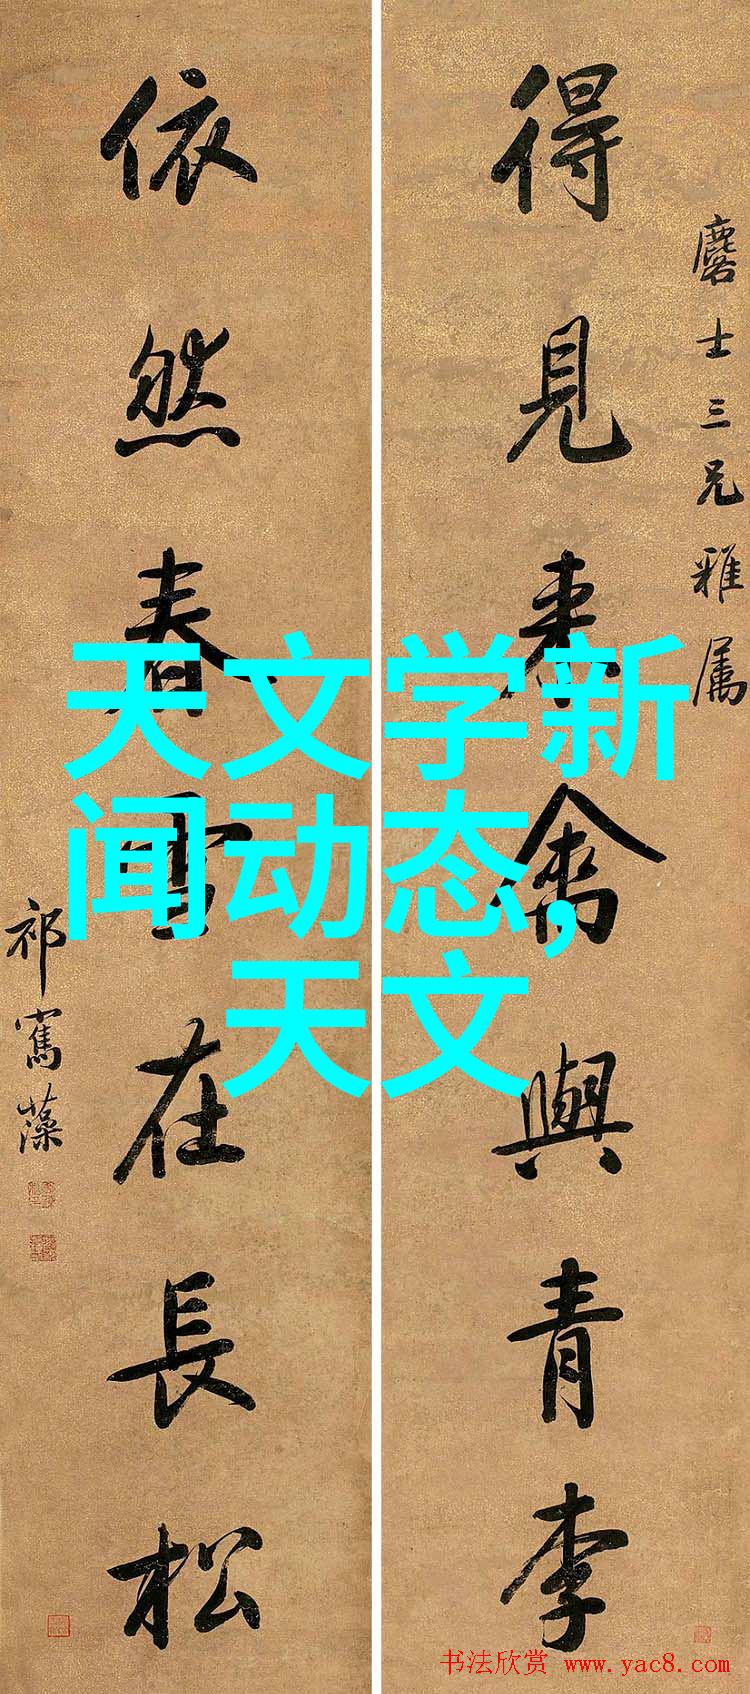 麐士三兄雅属
得見來禽與青李
依然春雪在長松
祁寯藻
天文学新
闻动态,
天文
书法欣赏 www.yac8.com